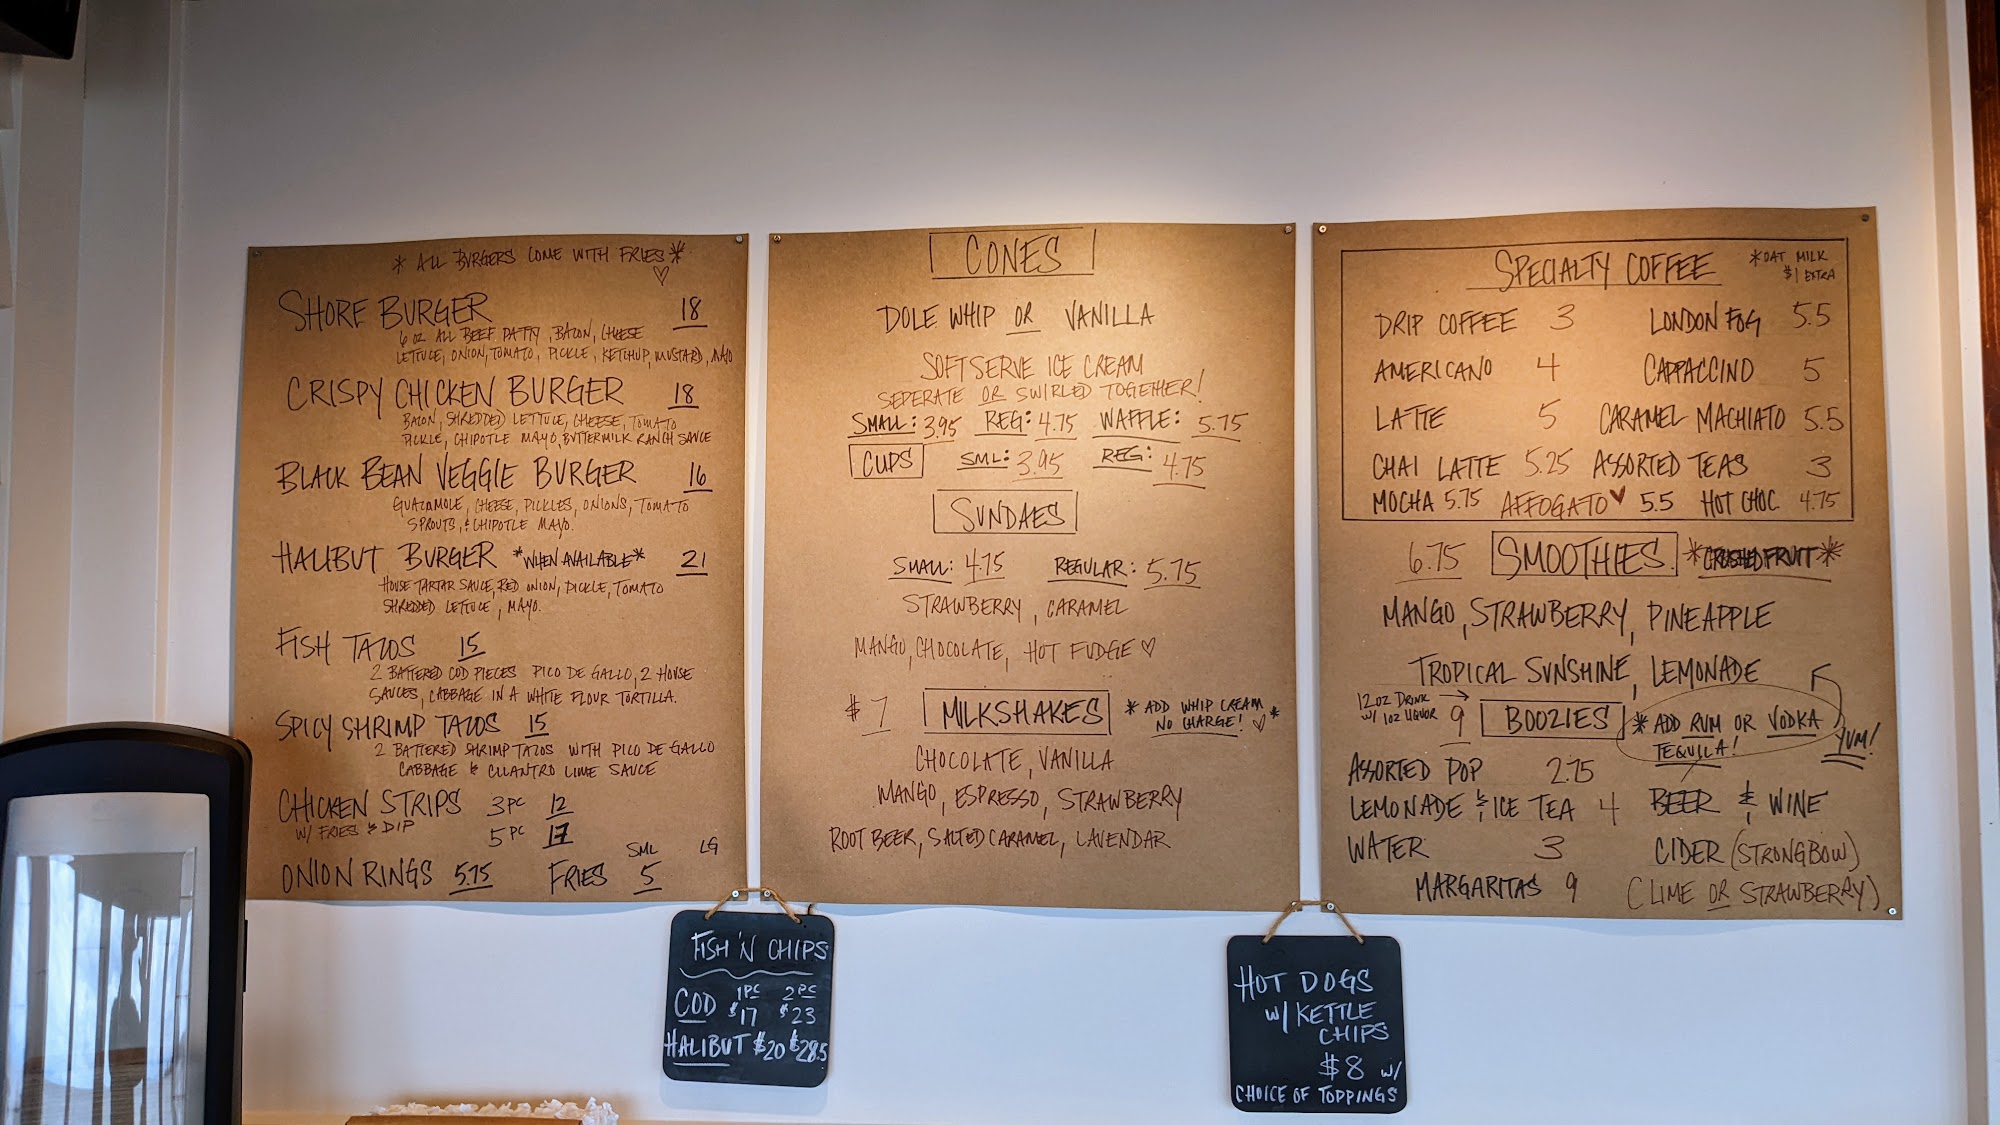 * ALL BURGERS COME WITH FRIES *
SHORE BURGER 18
6 OZ ALL BEEF PATTY, BACON, CHEESE
LETTUCE, ONION, TOMATO, PICKLE, KETCHUP, MUSTARD, MAYO
CRISPY CHICKEN BURGER 18
BACON, SHREDDED LETTUCE, CHEESE, TOMATO
PICKLE, CHIPOTLE MAYO, BUTTERMILK RANCH SAUCE
BLACK BEAN VEGGIE BURGER 16
GUACAMOLE, CHEESE, PICKLES, ONIONS, TOMATO
SPROUTS, & CHIPOTLE MAYO.
HALIBUT BURGER *WHEN AVAILABLE* 21
HOUSE TARTAR SAUCE, RED ONION, PICKLE, TOMATO
SHREDDED LETTUCE, MAYO.
FISH TACOS 15
2 BATTERED COD PIECES PICO DE GALLO, 2 HOUSE
SAUCES, CABBAGE IN A WHITE FLOUR TORTILLA.
SPICY SHRIMP TACOS 15
2 BATTERED SHRIMP TACOS WITH PICO DE GALLO
CABBAGE & CILANTRO LIME SAUCE
CHICKEN STRIPS 3PC 12
W/ FRIES & DIP 5PC 17
SML LG
ONION RINGS 5.75 FRIES 5
CONES
DOLE WHIP OR VANILLA
SOFTSERVE ICE CREAM
SEPERATE OR SWIRLED TOGETHER!
SMALL: 3.95 REG: 4.75 WAFFLE: 5.75
CUPS SML: 3.95 REG: 4.75
SUNDAES
SMALL: 4.75 REGULAR: 5.75
STRAWBERRY, CARAMEL
MANGO, CHOCOLATE, HOT FUDGE ♡
$7 MILKSHAKES * ADD WHIP CREAM
NO CHARGE! ♡ *
CHOCOLATE, VANILLA
MANGO, ESPRESSO, STRAWBERRY
ROOT BEER, SALTED CARAMEL, LAVENDAR
SPECIALTY COFFEE *OAT MILK
$1 EXTRA
DRIP COFFEE 3 LONDON FOG 5.5
AMERICANO 4 CAPPACCINO 5
LATTE 5 CARAMEL MACHIATO 5.5
CHAI LATTE 5.25 ASSORTED TEAS 3
MOCHA 5.75 AFFOGATO ♥ 5.5 HOT CHOC 4.75
6.75 SMOOTHIES *CRUSHED FRUIT*
MANGO, STRAWBERRY, PINEAPPLE
TROPICAL SUNSHINE, LEMONADE
12OZ DRINK →
W/ 1OZ LIQUOR 9 BOOZIES * ADD RUM OR VODKA
TEQUILA! YUM!
ASSORTED POP 2.75
LEMONADE & ICE TEA 4 BEER & WINE
WATER 3 CIDER (STRONGBOW)
MARGARITAS 9 (LIME OR STRAWBERRY)
FISH 'N CHIPS
1PC 2PC
COD $17 $23
HALIBUT $20 $28.5
HOT DOGS
W/ KETTLE
CHIPS
$8 W/
CHOICE OF TOPPINGS